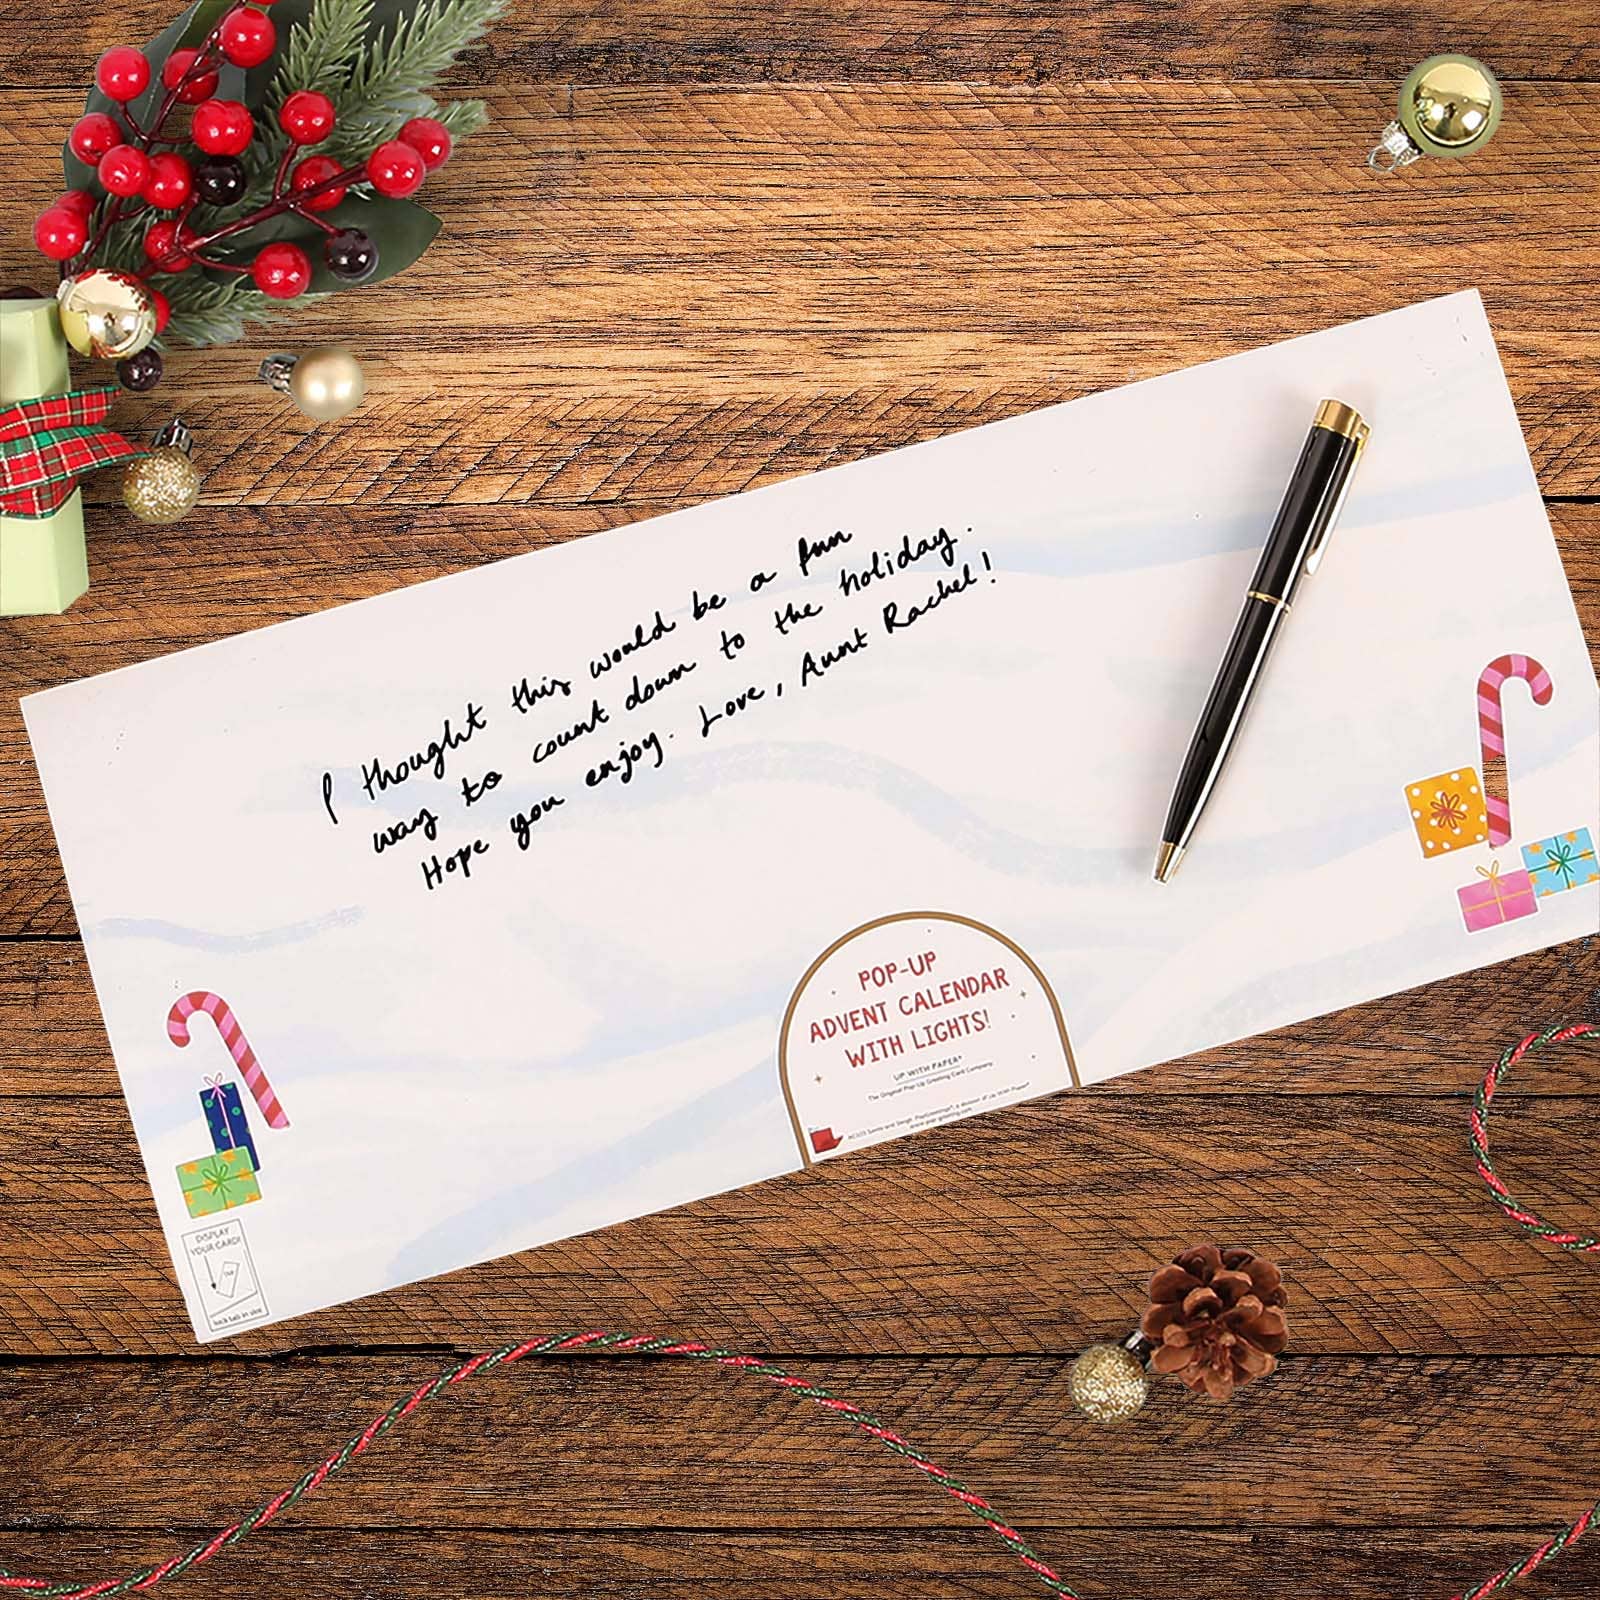 I thought this would be a fun
way to count down to the holiday.
Hope you enjoy. Love, Aunt Rachel!
POP-UP
ADVENT CALENDAR
WITH LIGHTS!
UP WITH PAPER®
The Original Pop-Up Greeting Card Company
www.pop-greeting.com
DISPLAY
YOUR CARD!
TAB
lock tab in slot